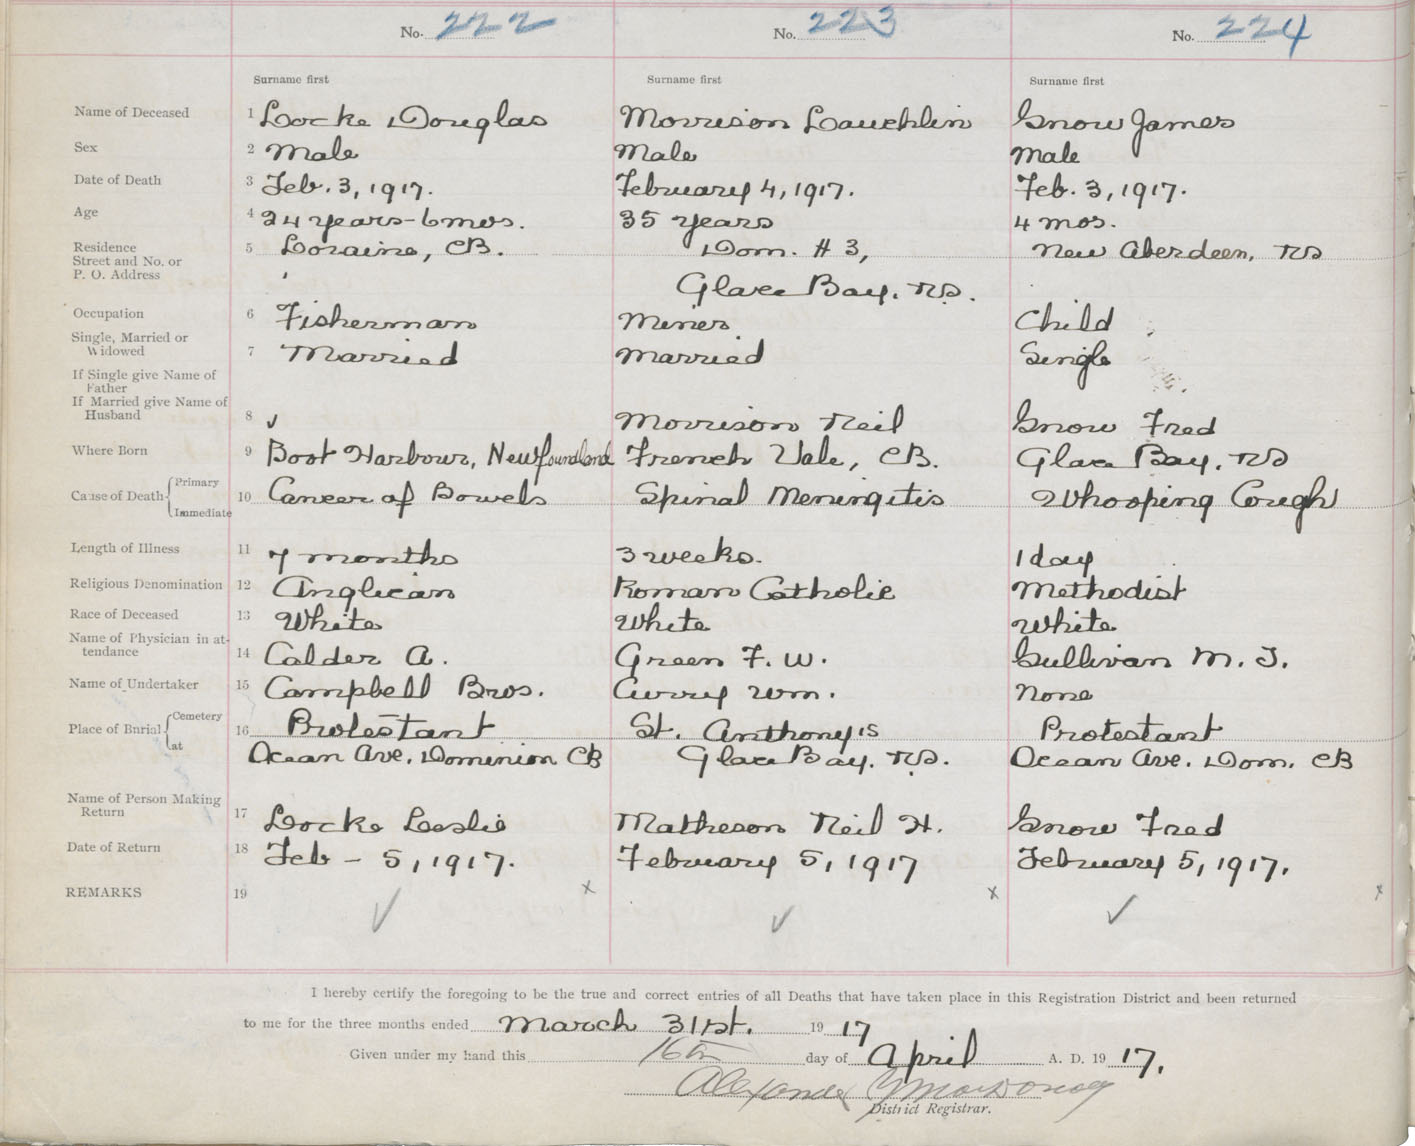 No. 222 No. 223 No. 224
Surname first Surname first Surname first
Name of Deceased 1 Locke Douglas Morrison Lauchlin Snow James
Sex 2 Male Male Male
Date of Death 3 Feb. 3, 1917. February 4, 1917. Feb. 3, 1917.
Age 4 24 years-6 mos. 35 years 4 mos.
Residence 5 Loraine, CB. Dom. # 3, New Aberdeen, NS
Street and No. or
P. O. Address Glace Bay, NS.
Occupation 6 Fisherman Miner Child
Single, Married or
Widowed 7 Married Married Single
If Single give Name of
Father
If Married give Name of
Husband 8 ✓ Morrison Neil Snow Fred
Where Born 9 Boot Harbour, Newfoundland French Vale, CB. Glace Bay, NS
Cause of Death { Primary
10 Cancer of Bowels Spinal Meningitis Whooping Cough
Immediate
Length of Illness 11 7 months 3 weeks. 1 day
Religious Denomination 12 Anglican Roman Catholic Methodist
Race of Deceased 13 White White White
Name of Physician in at-
tendance 14 Calder A. Green F. W. Sullivan M. J.
Name of Undertaker 15 Campbell Bros. Curry Wm. None
Place of Burial { Cemetery 16 Protestant St. Anthony's Protestant
at Ocean Ave, Dominion CB Glace Bay, NS. Ocean Ave. Dom. CB
Name of Person Making
Return 17 Locke Leslie Matheson Neil H. Snow Fred
Date of Return 18 Feb - 5, 1917. February 5, 1917 February 5, 1917.
REMARKS 19 x x x
✓ ✓ ✓
I hereby certify the foregoing to be the true and correct entries of all Deaths that have taken place in this Registration District and been returned
to me for the three months ended March 31st. 19 17
Given under my hand this 16th day of April A. D. 19 17.
Alexander
District Registrar.